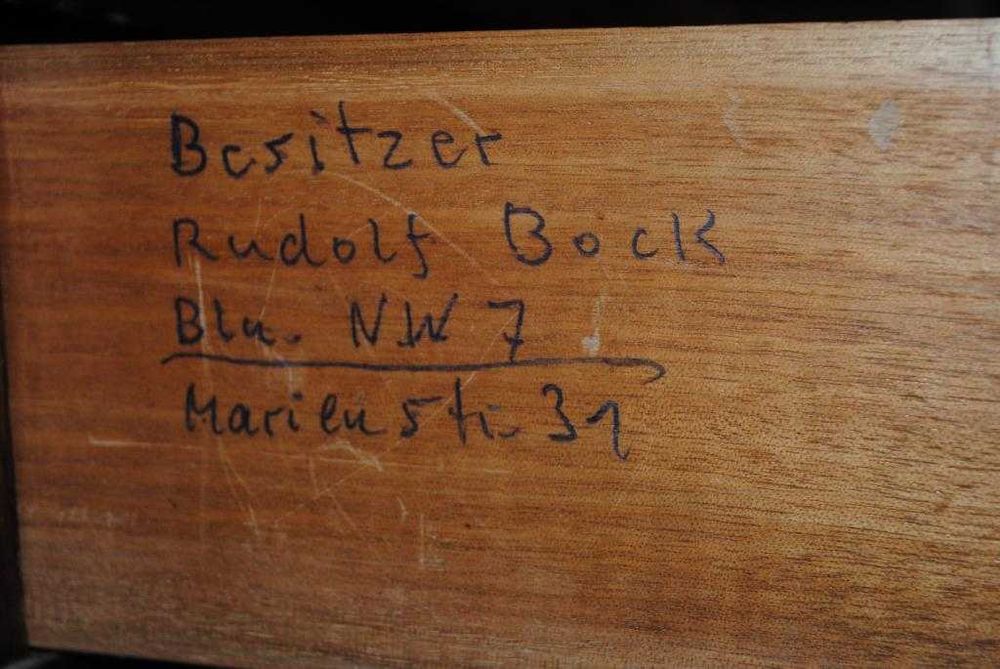 Besitzer
Rudolf Bock
Bln. NW 7
Marienstr. 31